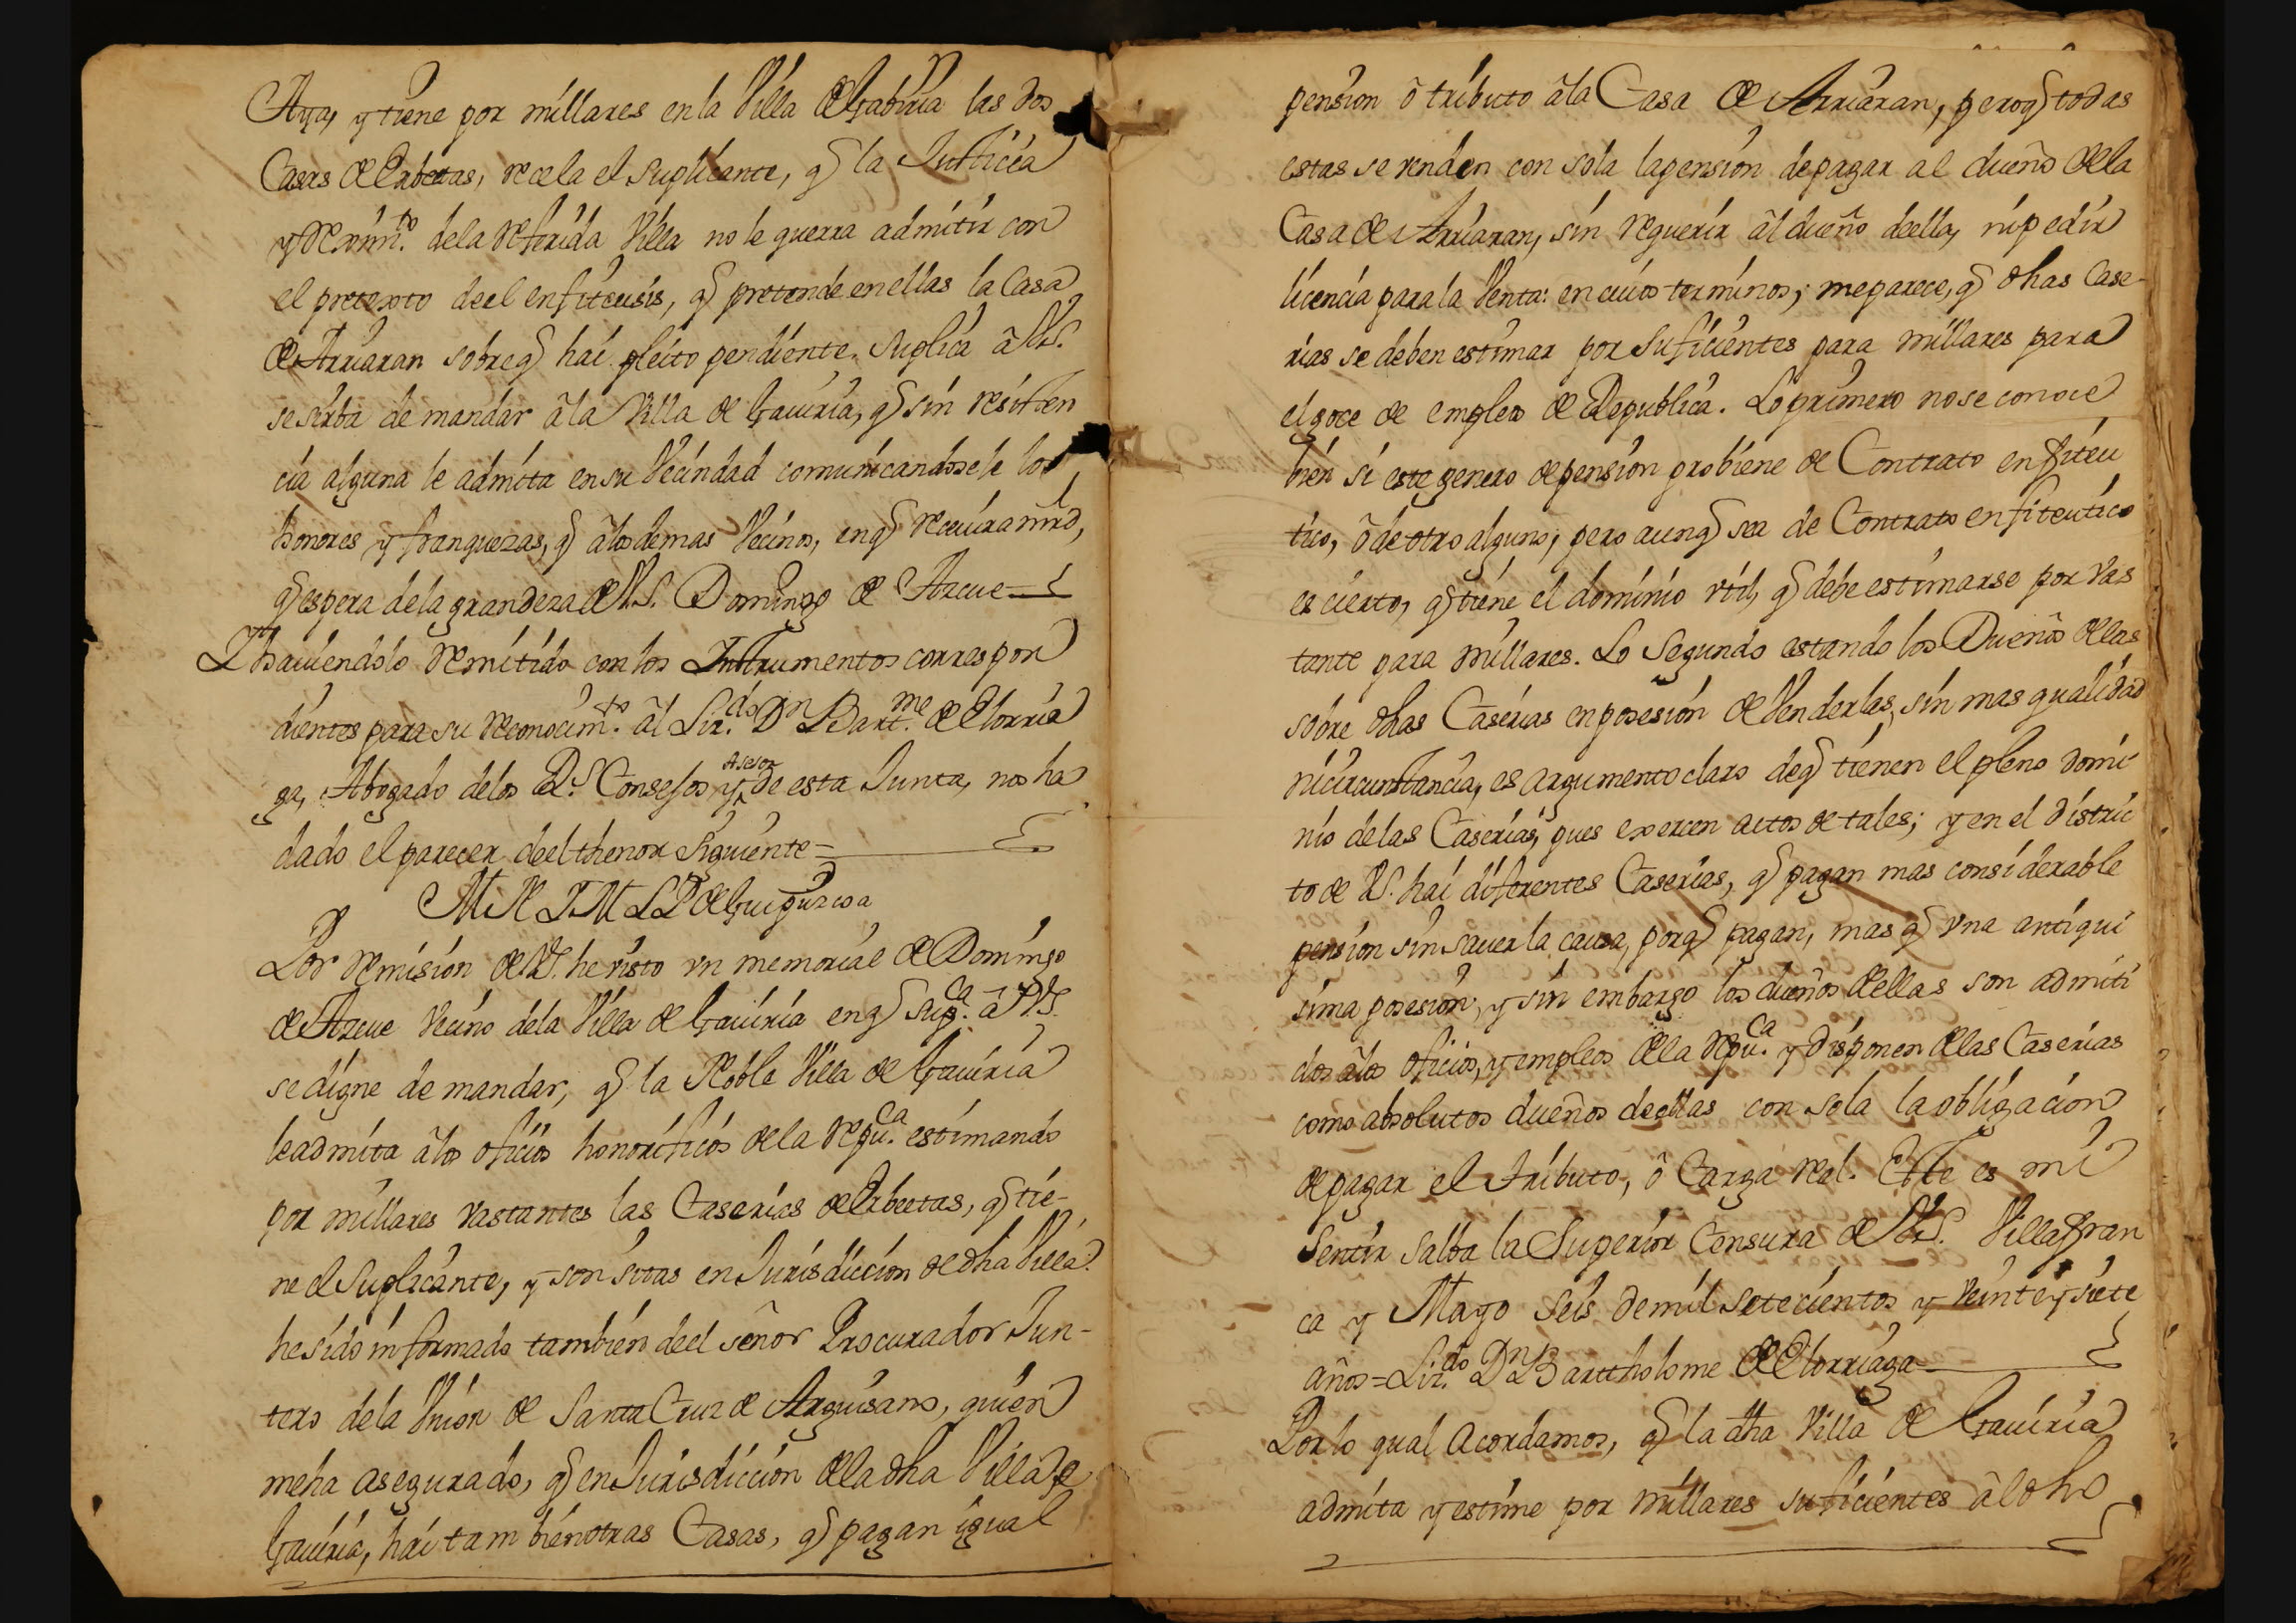 Aya, y tiene por millares en la Villa de Gabiria las dos
Casas de Erbeetas, recela el Suplicante, q̃ la Justicia
y Reximto. de la referida Villa no le querra admitir con
el pretexto deel enfiteusis, q̃ pretende en ellas la Casa
de Arriaran sobre q̃ hai pleito pendiente. Suplica â V.S.
se sirba de mandar â la Villa de Gauiria, q̃ sin resisten
cia alguna le admita en su Vecindad comunicandosele los
honores y franquezas, q̃ â los demas Vecinos, en q̃ reciuira mrd,
q̃ espera de la grandeza de V.S. Domingo de Azcue=
Y hauiendolo remitido con los Instrumentos correspon
dientes para su reconocimto. âl Lizdo. Dn Bartme. de Elorria
ga, Abogado de los Rs. Consejos y Asesor de esta Junta, nos ha
dado el parecer deel thenor Siguiente=
M N Y M L P de Guipuzcoa
Por remision de V.S. he visto vn memorial de Domingo
de Azcue vecino dela Villa de Gauiria en q̃ Supca. â V.S.
se digne de mandar, q̃ la Noble Villa de Gauiria
le admita â los oficios honorificos de la repuca. estimando
por millares vastantes las Caserias de Erbeetas, q̃ tie-
ne el Suplicante, y son sitas en Jurisdiccion de dha Villa:
he sido informado tambien deel señor Procurador Jun-
tero dela Vnion de Santa Cruz de Arguisano, quien
me ha asegurado, q̃ en Jurisdiccion de la dha Villa de
Gauiria, hai tambien otras Casas, q̃ pagan igual
pension ô tributo â la Casa de Arriaran, pero q̃ todas
estas se venden con sola la pension de pagar al dueño de la
Casa de Arriaran, sin requerir âl dueño deella, ni pedir
licencia para la Venta: en cuios terminos, me parece, q̃ dhas Case-
rias se deben estimar por Suficientes para millares para
el goce de empleos de Republica. Lo primero no se conoce
bien si este genero de pension probiene de Contrato enfiteu
tico, ô de otro alguno, pero aunq̃ sea de Contrato enfiteutico
es cierto, q̃ tiene el dominio vtil, q̃ debe estimarse por vas
tante para millares. Lo Segundo estando los Dueños de las
sobre dhas Caserias en posesion de Venderlas, sin mas qualidad
ni circunstancia, es argumento claro de q̃ tienen el pleno domi
nio de las Caserias, pues exercen actos de tales; y en el distric
to de V.S. hai diferentes Caserias, q̃ pagan mas considerable
pension sin sauer la causa, porq̃ pagan, mas q̃ vna antiqui
sima posesion, y sin embargo los dueños de ellas son admiti
dos â los oficios, y empleos de la repuca. y disponen de las Caserias
como absolutos dueños deellas con sola la obligacion
de pagar el tributo, ô Carga real. Este es mi
Sentir Salba la Superior Censura de V.S. Villafran
ca y Mayo seis de mil setecientos y veinte y siete
años=Lizdo. Dn Barttholome de Elorriaga
Por lo qual Acordamos, q̃ la dha Villa de Gauiria
admita y estime por millares suficientes âl dho